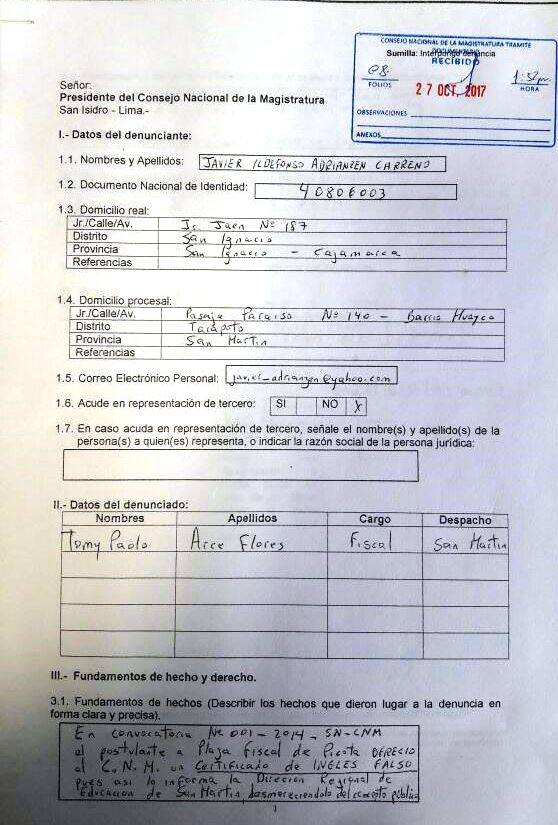 CONSEJO NACIONAL DE LA MAGISTRATURA TRAMITE
Sumilla: Interpongo denuncia
RECIBIDO
08
FOLIOS
27 OCT. 2017
1:52pm
HORA
OBSERVACIONES
ANEXOS
Señor:
Presidente del Consejo Nacional de la Magistratura
San Isidro - Lima.-
I.- Datos del denunciante:
1.1. Nombres y Apellidos: JAVIER ILDEFONSO ADRIANZEN CARRENO
1.2. Documento Nacional de Identidad: 40806003
1.3. Domicilio real:
Jr./Calle/Av. Jr. Jaen Nº 187
Distrito San Ignacio
Provincia San Ignacio - Cajamarca
Referencias
1.4. Domicilio procesal:
Jr./Calle/Av. Pasaje Paraiso Nº 140 - Barrio Huayco
Distrito Tarapoto
Provincia San Martin
Referencias
1.5. Correo Electrónico Personal: javier_adrianzen@yahoo.com
1.6. Acude en representación de tercero: SI NO X
1.7. En caso acuda en representación de tercero, señale el nombre(s) y apellido(s) de la
persona(s) a quien(es) representa, o indicar la razón social de la persona jurídica:
II.- Datos del denunciado:
Nombres Apellidos Cargo Despacho
Tomy Paolo Arce Flores Fiscal San Martin
III.- Fundamentos de hecho y derecho.
3.1. Fundamentos de hechos (Describir los hechos que dieron lugar a la denuncia en
forma clara y precisa).
En Convocatoria Nº 001 - 2014 - SN-CNM
el postulante a Plaza Fiscal de Picota OFRECIO
al C.N.M. un Certificado de INGLES FALSO
pues asi lo informa la Direccion Regional de
Educacion de San Martin, desmereciendolo del concepto público
1